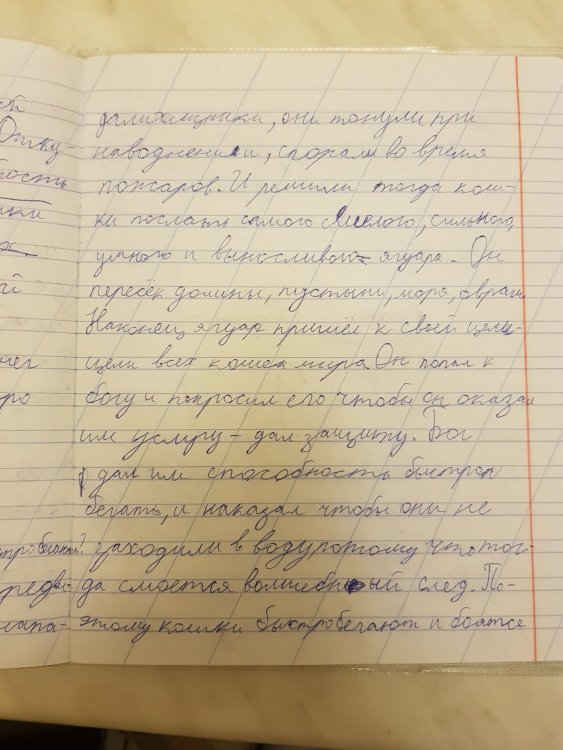 ей
Отку-
ность
ики
й
чег
ро
тробегания?
реди-
лапа-
они тонули при
наводнении, сгорали во время
пожаров. И решили тогда кош-
ки послать самого смелого, сильного,
умного и выносливого ягуара. Он
пересёк долины, пустыни, моря, овраги.
Наконец, ягуар пришёл к своей цели-
цели всех кошек мира. Он попал к
богу и попросил его чтобы он оказал
им услугу - дал защиту. Бог
дал им способность быстро
бегать, и наказал чтобы они не
заходили в воду потому что тог-
да смоется волшебный след. По-
этому кошки быстробегают и боятся